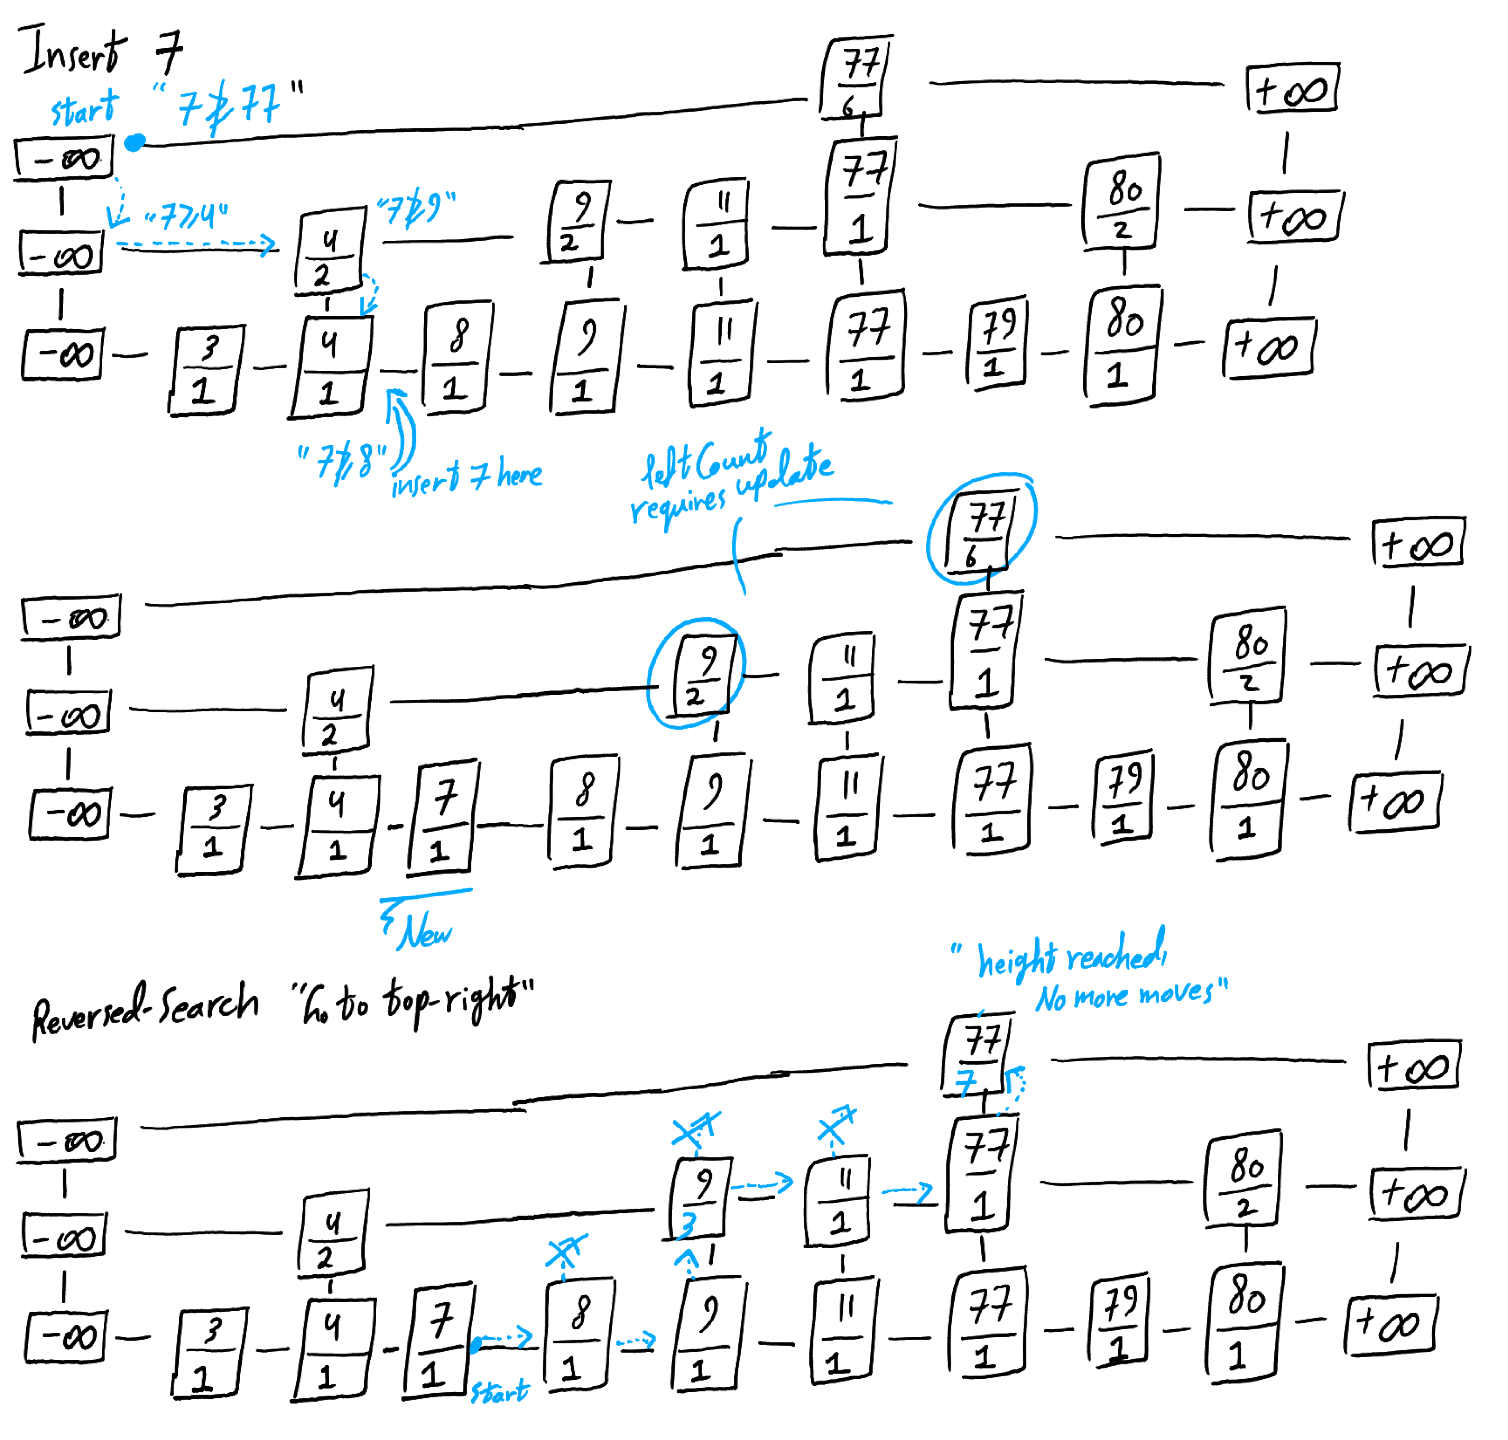 Insert 7
start "7≱77"
77
6
+∞
-∞
77
1
80
2
+∞
"7≥4"
"7≱9"
9
2
11
1
-∞
4
2
-∞
3
1
4
1
8
1
9
1
11
1
77
1
79
1
80
1
+∞
"7≱8"
insert 7 here
leftCount
requires update
77
6
+∞
-∞
77
1
80
2
+∞
-∞
4
2
9
2
11
1
-∞
3
1
4
1
7
1
8
1
9
1
11
1
77
1
79
1
80
1
+∞
New
Reversed-Search "Go to top-right"
"height reached,
No more moves"
77
7
+∞
-∞
77
1
80
2
+∞
-∞
4
2
9
3
11
1
-∞
3
1
4
1
7
1
8
1
9
1
11
1
77
1
79
1
80
1
+∞
start